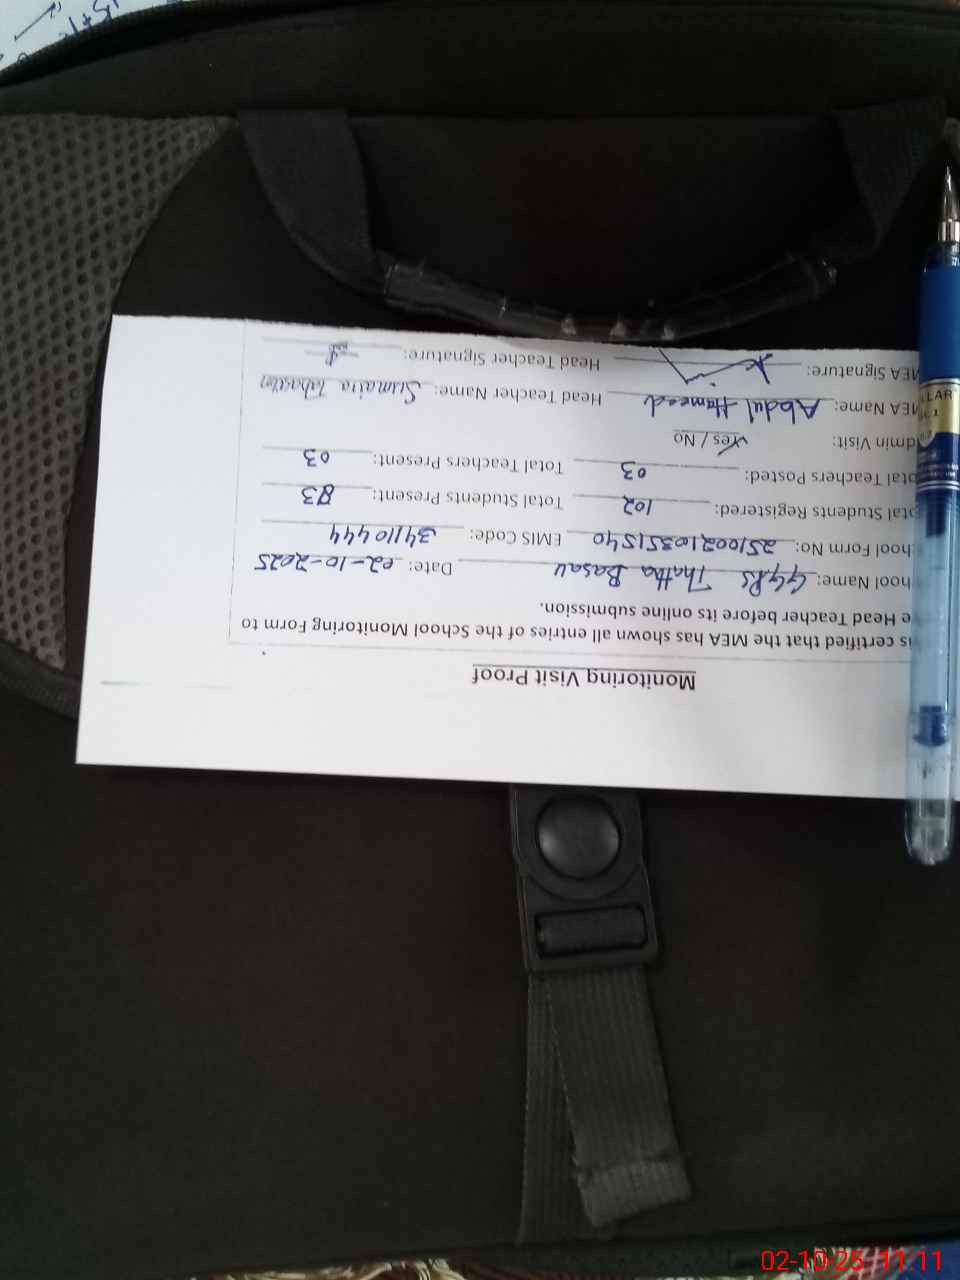 Monitoring Visit Proof
is certified that the MEA has shown all entries of the School Monitoring Form to
e Head Teacher before its online submission.
hool Name: GGPS Thatha Basau Date: 02-10-2025
chool Form No: 2510021035151540 EMIS Code: 34110444
otal Students Registered: 102 Total Students Present: 83
otal Teachers Posted: 03 Total Teachers Present: 03
dmin Visit: Yes / No
MEA Name: Abdul Hameed Head Teacher Name: Sumaira Tabassum
MEA Signature: Head Teacher Signature:
LLAR
02-10-25 11:11